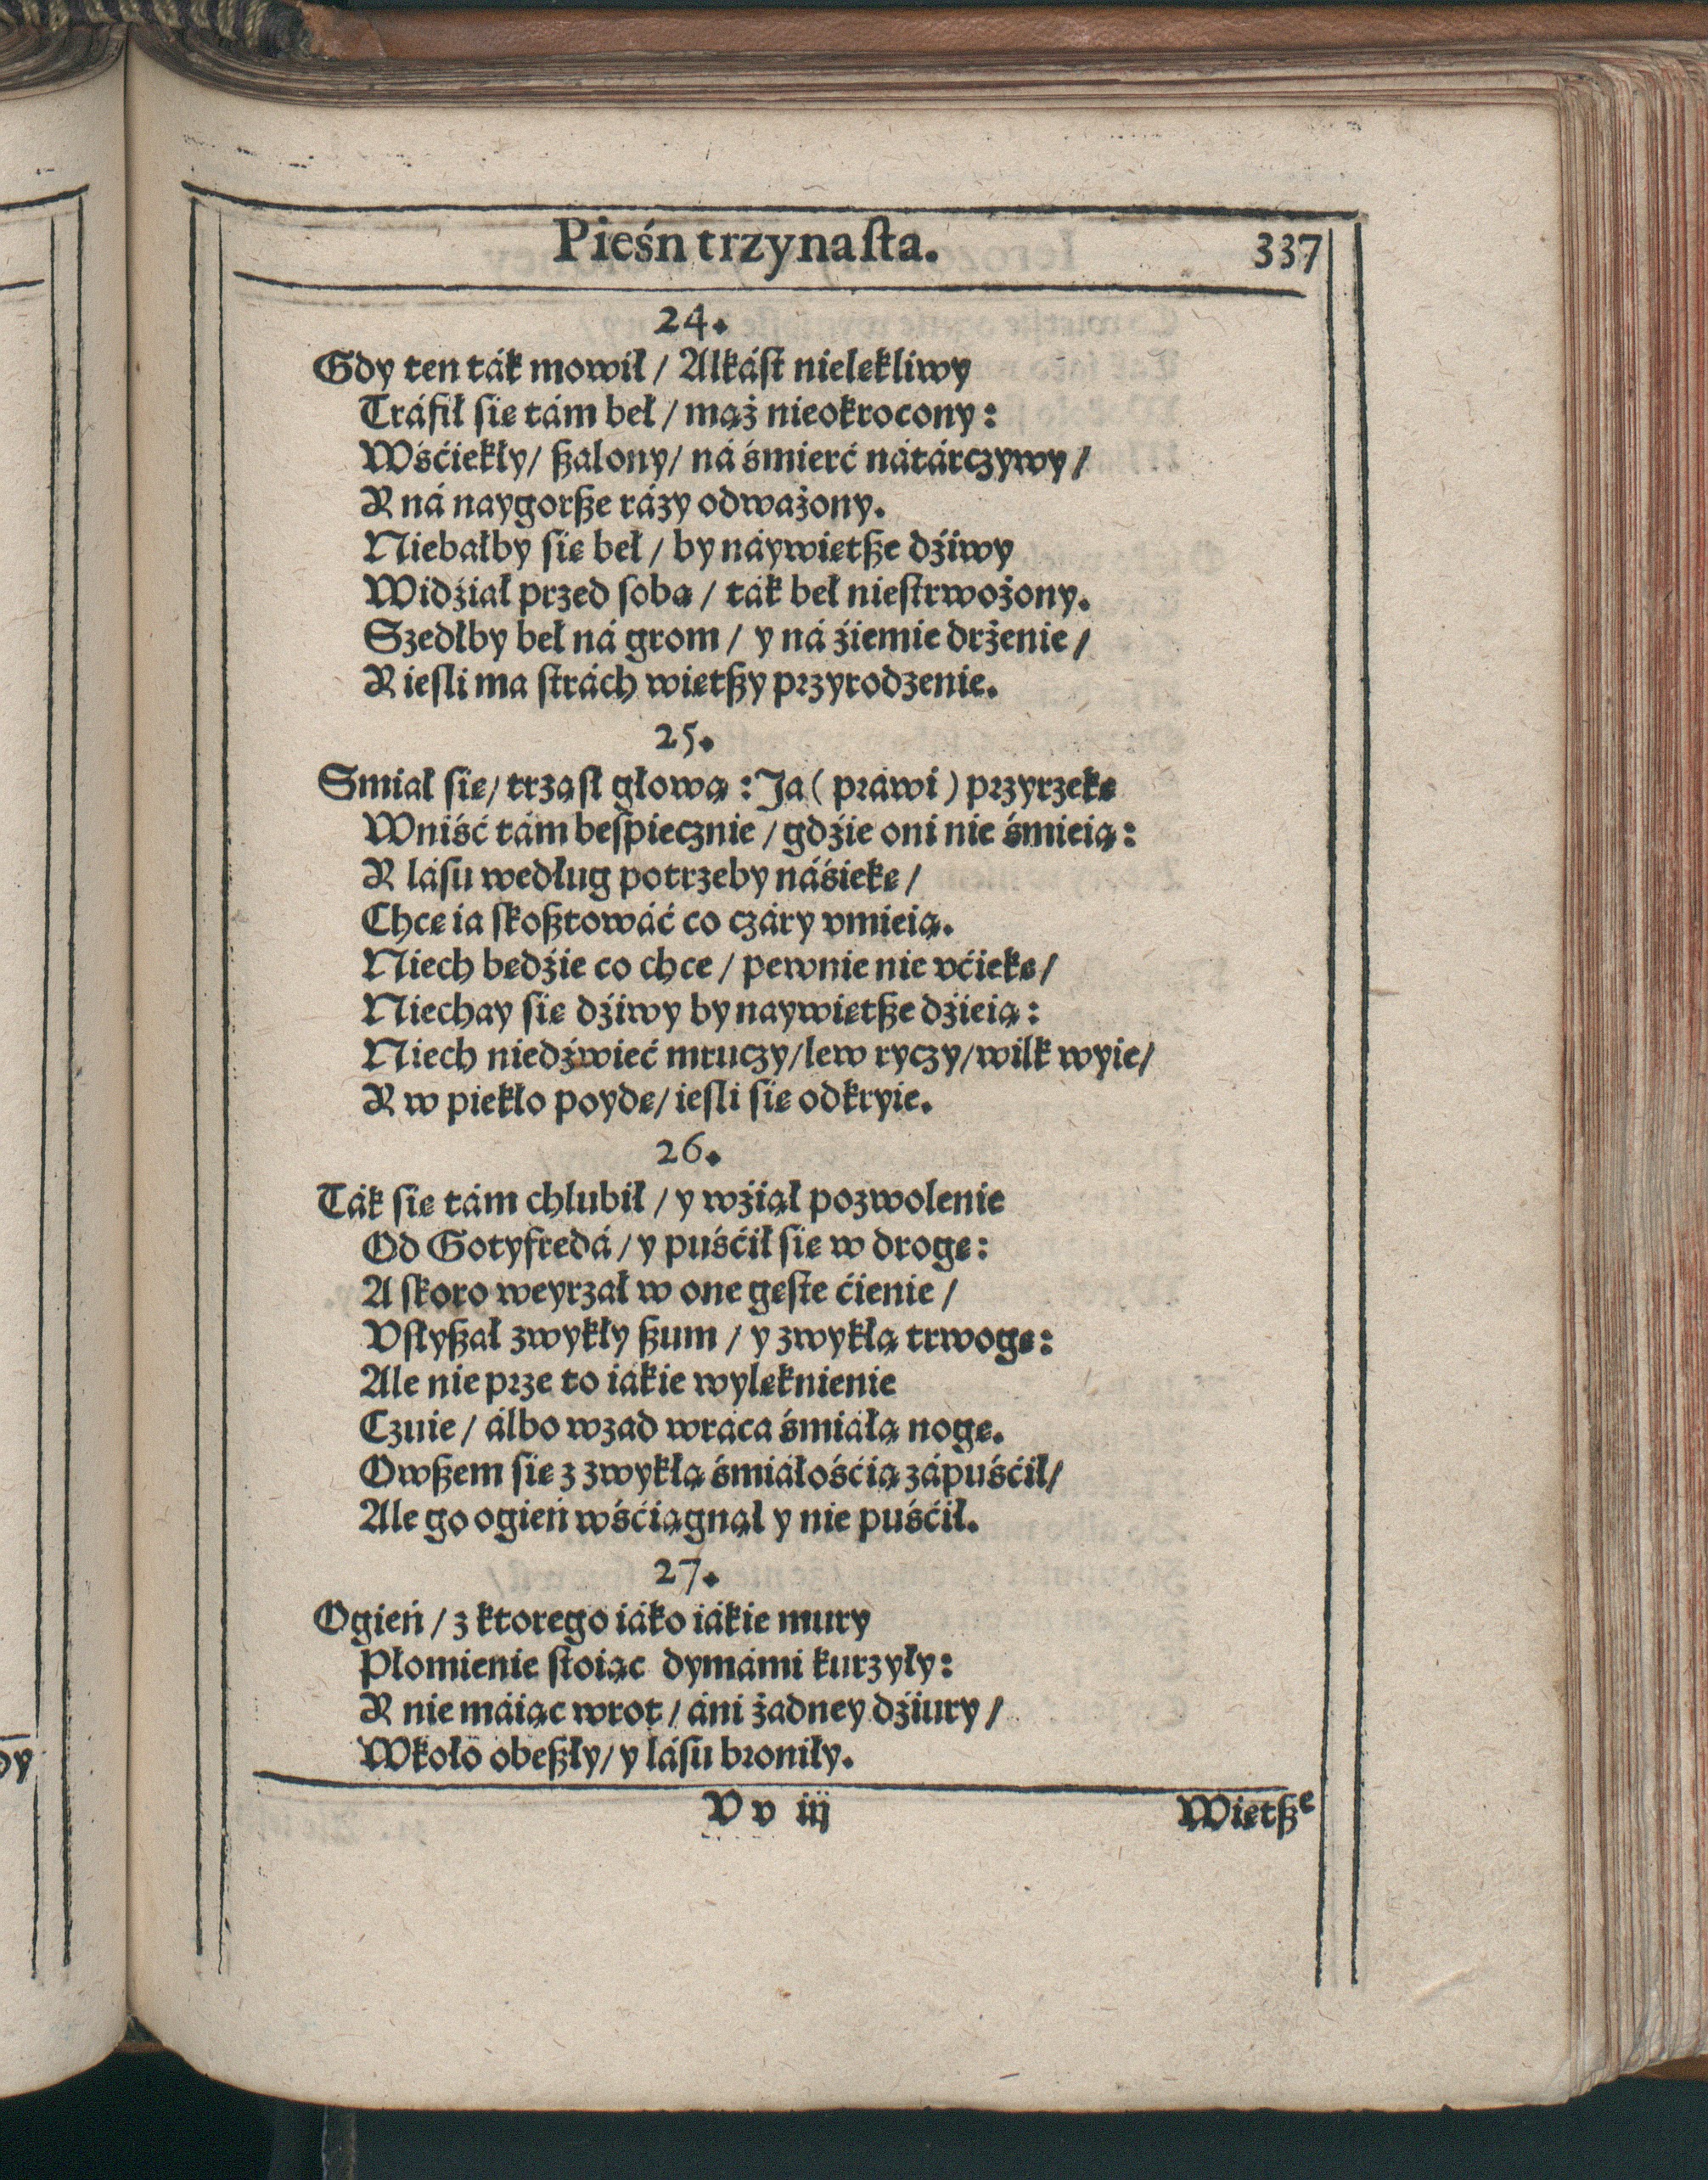 Pieśń trzynaſta. 337
24.
Gdy ten ták mowił / Alkáſt nielękliwy
Tráfił ſię tám beł / mąż nieokrocony:
Wśćiekły / ßalony / ná śmierć nátárczywy /
Y ná naygorße rázy odważony.
Niebałby ſię beł / by náywiętße dźiwy
Widźiał przed ſobą / ták beł nieſtrwożony.
Szedłby beł ná grom / y ná źiemie drżenie /
Y ieſli ma ſtrách więtßy przyrodzenie.
25.
Smiał ſię / trząſł głową : Ja ( práwi ) przyrzekę
Wniść tám beſpiecznie / gdźie oni nie śmieią:
Y láſu według potrzeby náśiekę /
Chcę ia ſkoßtowáć co czáry vmieią.
Niech będźie co chce / pewnie nie vćiekę /
Niechay ſię dźiwy by naywiętße dźieią:
Niech niedźwieć mruczy / lew ryczy / wilk wyie /
Y w piekło poydę / ieſli ſię odkryie.
26.
Ták ſię tám chlubił / y wźiął pozwolenie
Od Gotyfredá / y puśćił ſię w drogę:
A ſkoro weyrzał w one gęſte ćienie /
Vſłyßał zwykły ßum / y zwykłą trwogę:
Ale nie prze to iákie wylęknienie
Czuie / álbo wzad wraca śmiáłą nogę.
Owßem ſię z zwykłą śmiáłośćią zápuśćił /
Ale go ogień wśćiągnął y nie puśćił.
27.
Ogień / z ktorego iáko iákie mury
Płomienie ſtoiąc dymámi kurzyły:
Y nie máiąc wrot / áni żadney dźiury /
Wkoło obeßły / y láſu broniły.
V v iij Więtße
dy